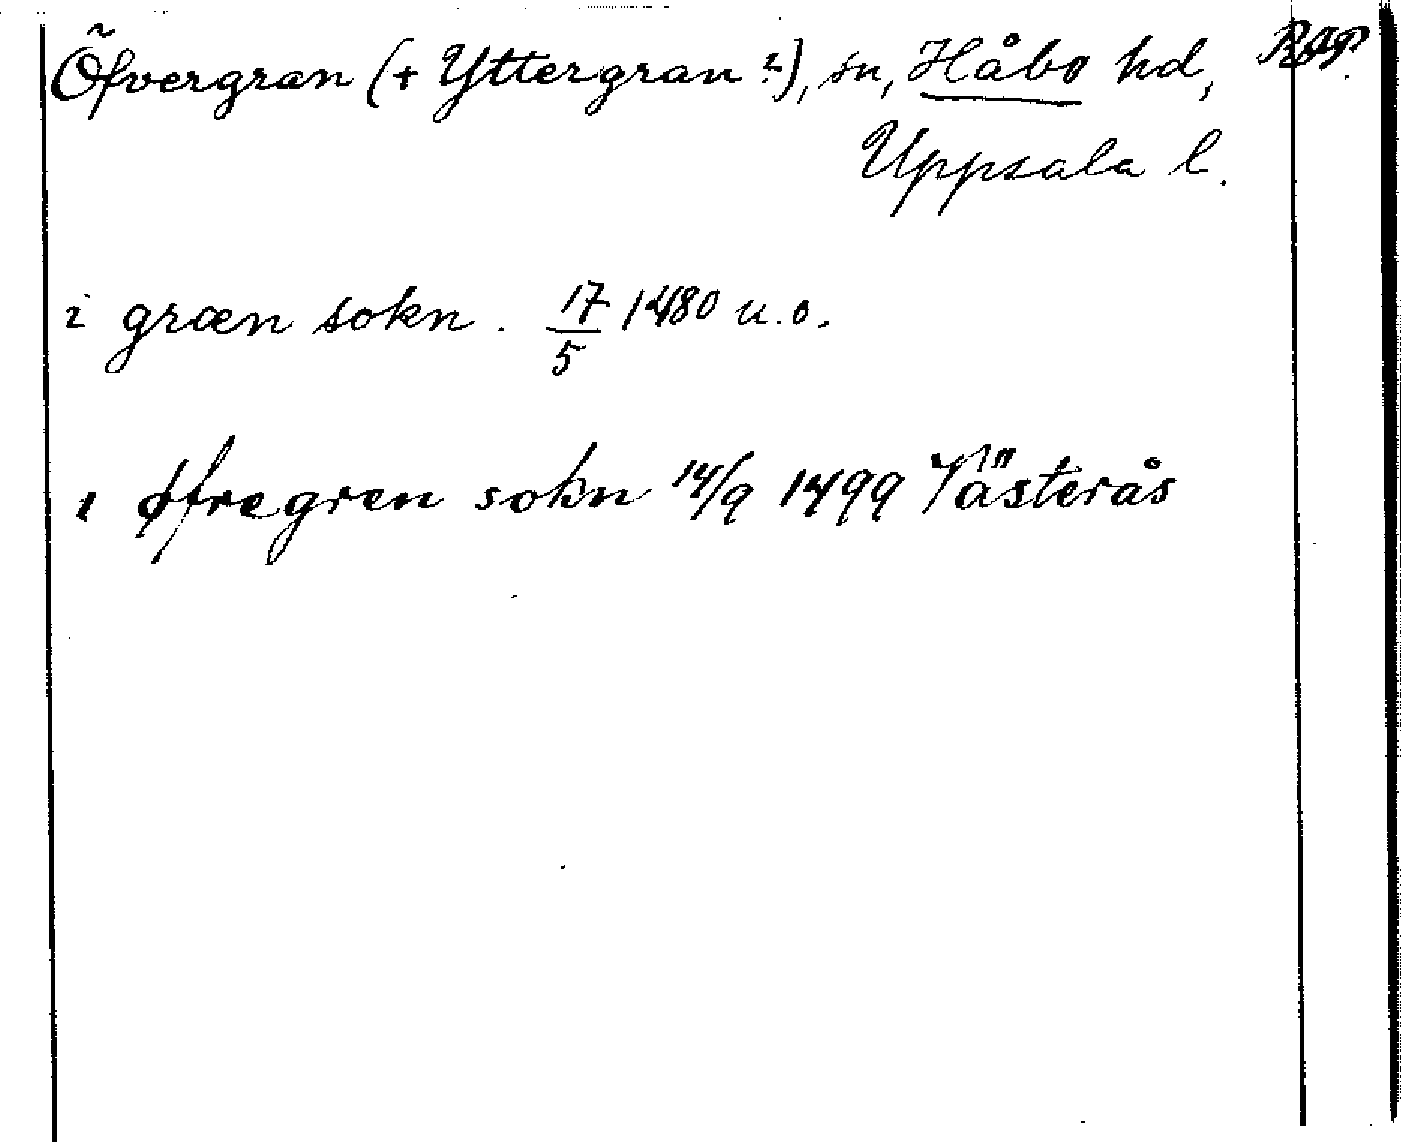 Öfvergran (+ Yttergran?), sn, Håbo hd, RAP.
Uppsala l.
i græn sokn. 17/5 1480 u.o.
i øfregren sokn 14/9 1499 Västerås